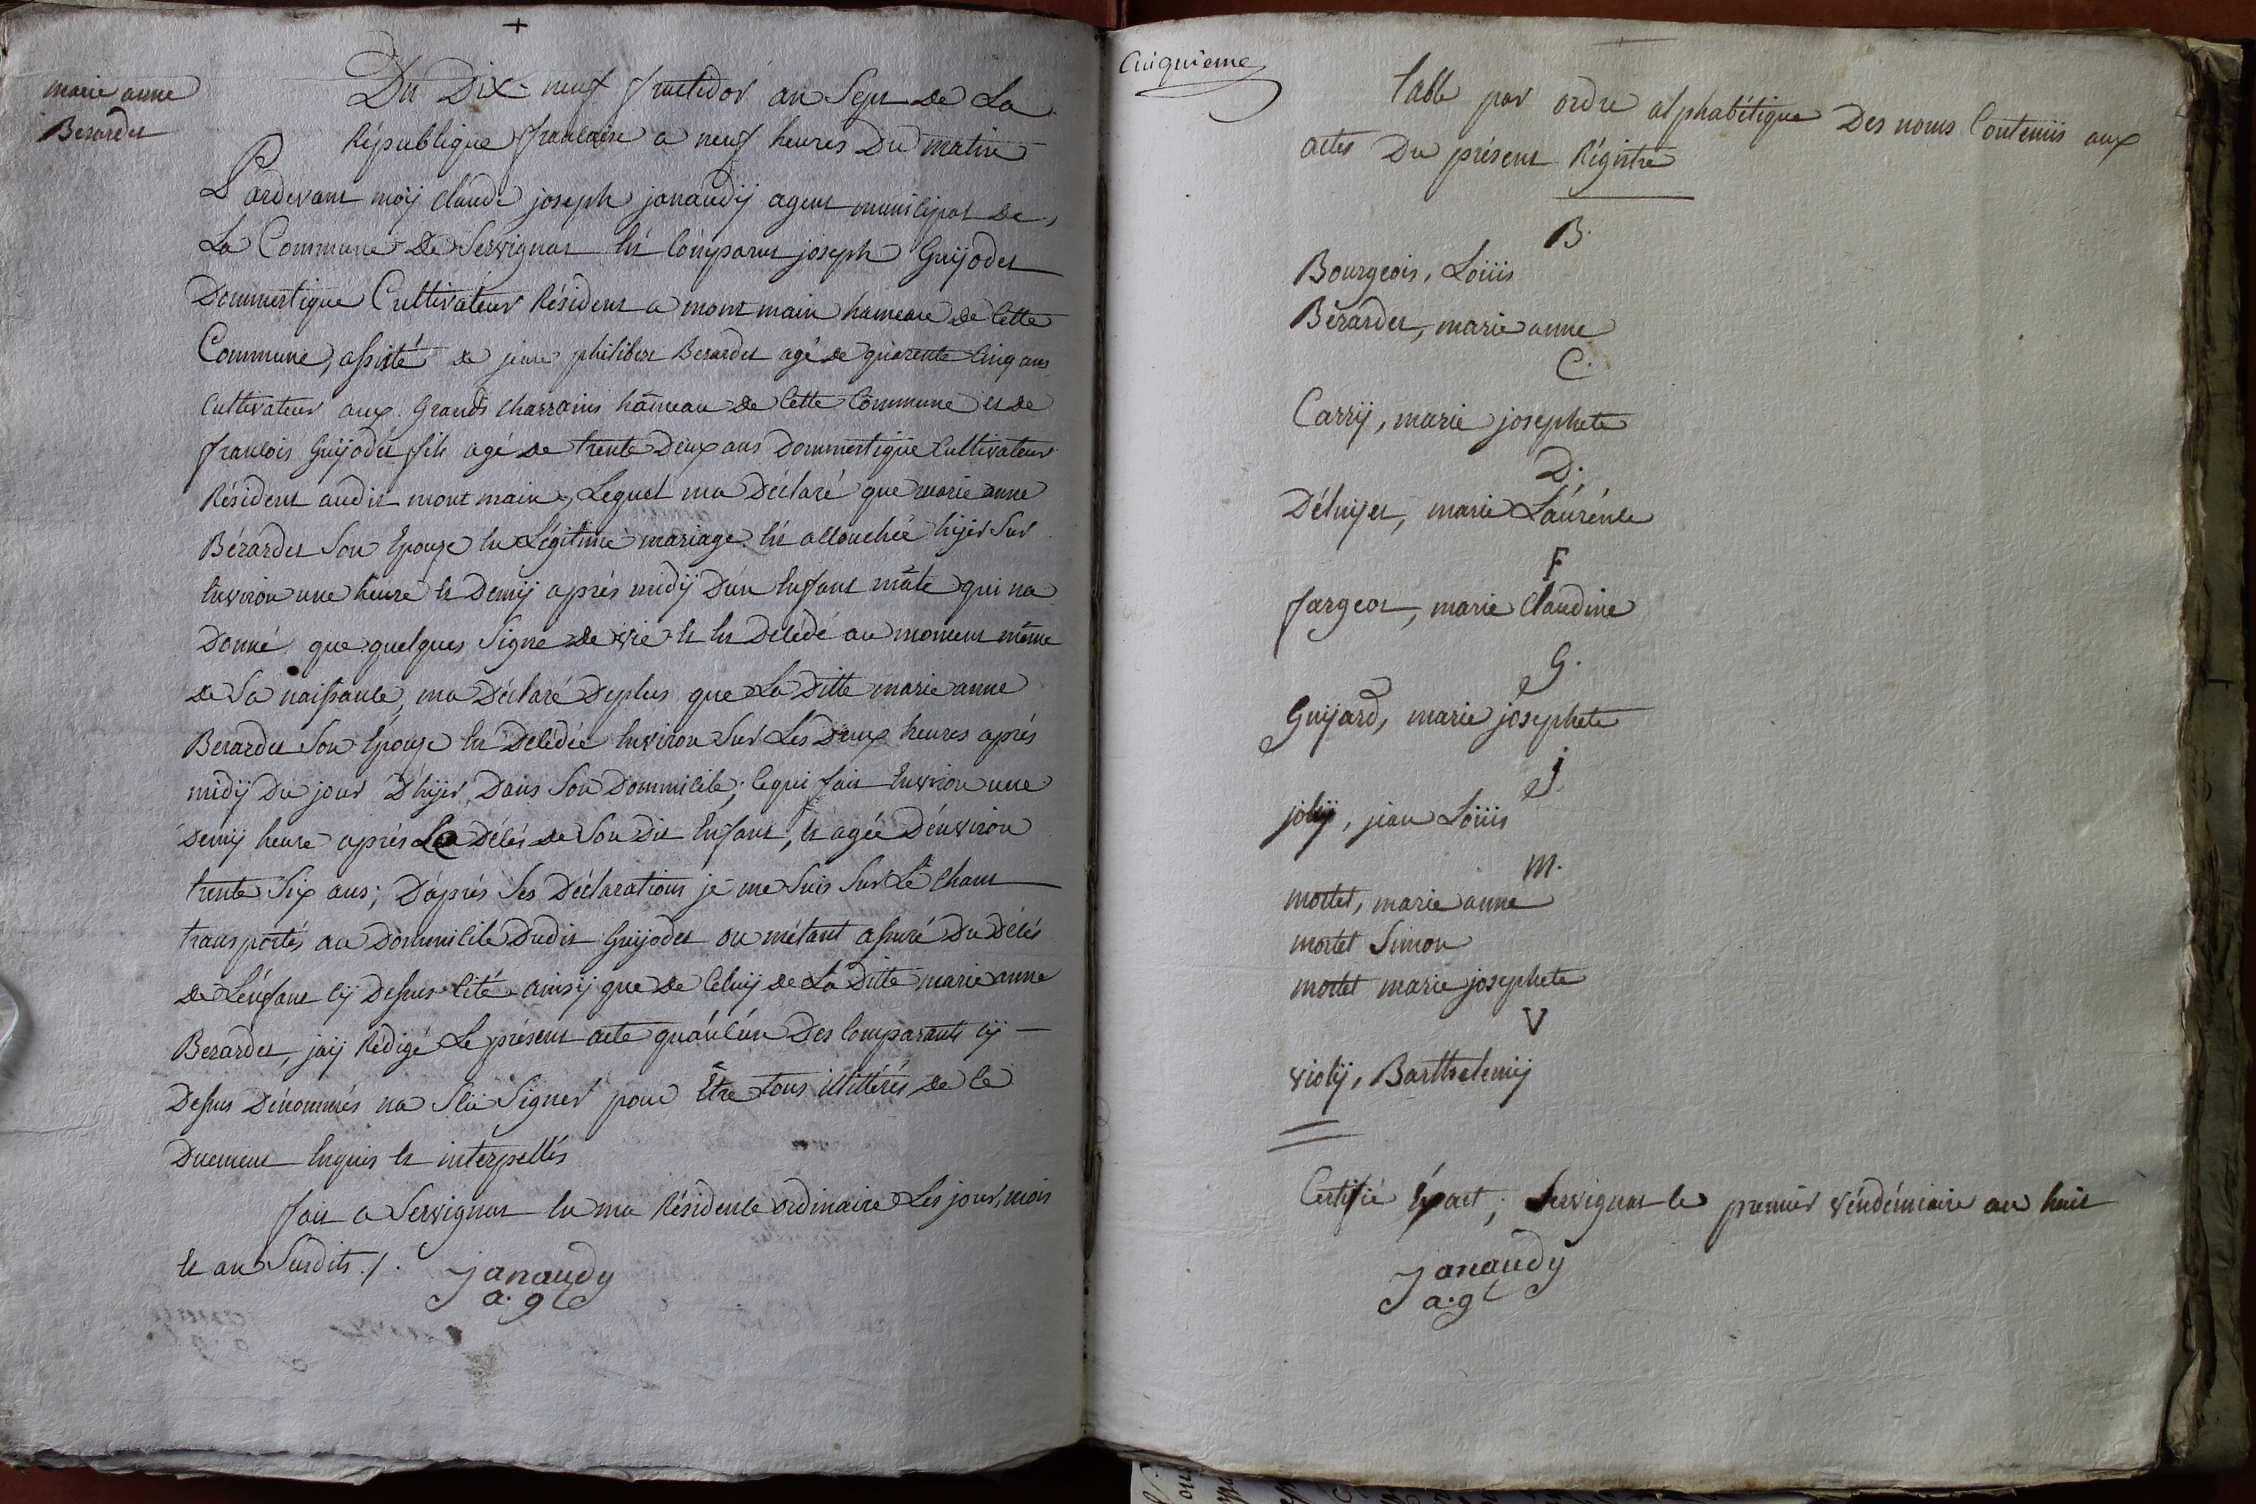 marie anne
Berardet
Du Dix-neuf fructidor an Sept de La
République francaise a neuf heures Du matin
Pardevant moÿ claude joseph janaudÿ agent municipal de
La Commune De Servignat est comparut joseph Guÿodet
Dommestique Cultivateur Résident a mont main hameau de cette
Commune, assisté de jean philibert Berardet agé de quarente cinq ans
Cultivateur aux Grands charranis hâmeau de cette Commune et de
francois Guÿodet fils agé de trente Deux ans Dommestique Cultivateur
Résident audit mont main, Lequel ma Déclaré que marie anne
Bérardet Son Epouze en Légitime mariage est accouchée hÿer Sur
Environ une heure et Demÿ aprés midÿ D'un Enfant mâle qui na
Donné que quelques Signe de vie et est Décédé au moment même
de Sa naissance, ma Déclaré Deplus que La Ditte marie anne
Berardet Son Epouze est Décédée Environ Sur Les Deux heures aprés
midÿ Du jour D'hÿer Dans Son Dommicile; cequi fait Environ une
Demÿ heure aprés Le Décés de Son Dit Enfant, et agée D'environ
trente Six ans; D'aprés Ses Déclarations je me Suis Sur Le Chant
transportés au Dommicile Dudit Guÿodet ou métant assuré Du Décés
de L'enfant cÿ Dessus cité ainsÿ que de Celuÿ de La Ditte marie anne
Berardet, jaÿ Rédigé Le présent acte qu'aucun Des Comparants cÿ
Dessus Dénommés na Scu Signer pour Être tous illittérés, de ce
Duement Enquis et interpellés
fait a Servignat en ma Résidence ordinaire Les jour, mois
et an Susdits ./.
Janaudy
a. gt
Cinquieme
table par ordre alphabétique Des noms Contenus aux
actes Du présent Régistre
B.
Bourgeois, Loüis
Bérardet, marie anne
C.
Carrÿ, marie josephete
D.
Déluÿet, marie Laurénce
F
fargeot, marie claudine
G.
Guÿard, marie josephete
j.
jolÿ, jean Loüis
m.
mortet, marie anne
mortet Simon
mortet marie josephete
V
violÿ, Barthelemÿ
Certifié Exact; Servignat le premier véndémiaire an huit
Janaudy
a.gt